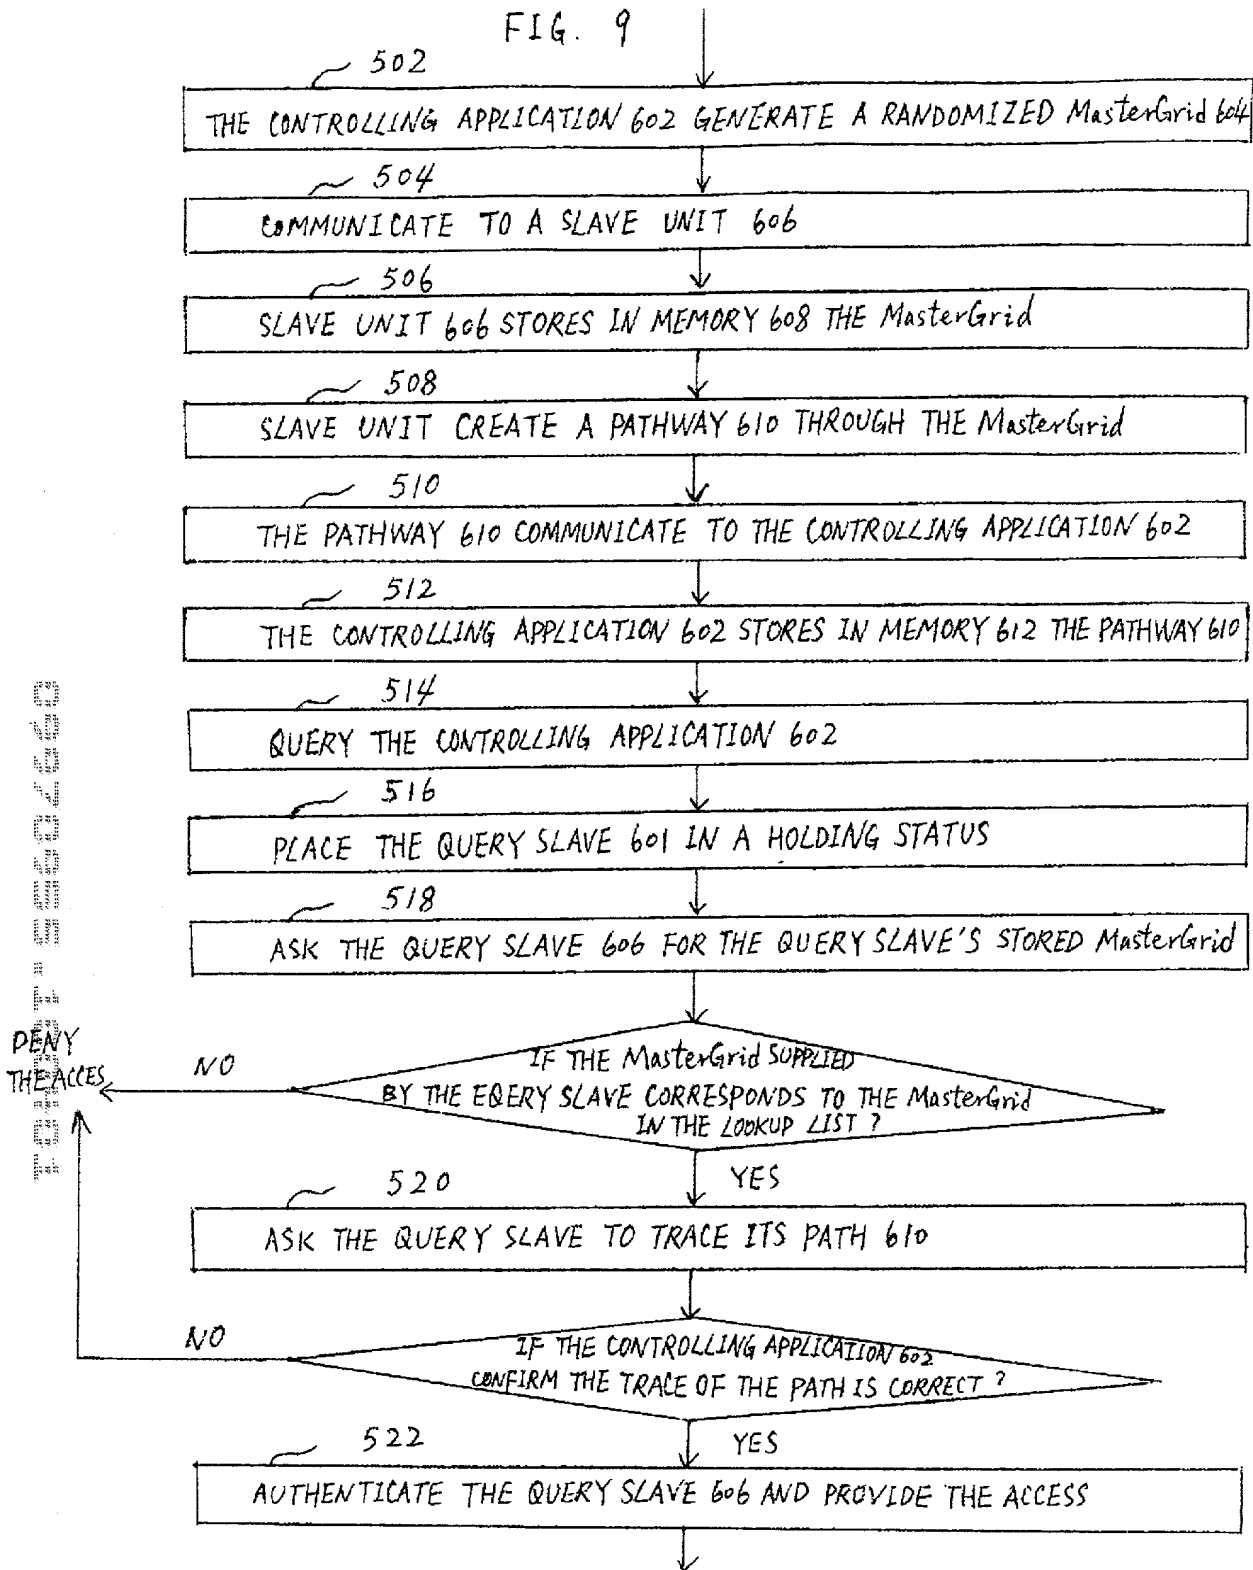 FIG. 9
502
THE CONTROLLING APPLICATION 602 GENERATE A RANDOMIZED MasterGrid 604
504
COMMUNICATE TO A SLAVE UNIT 606
506
SLAVE UNIT 606 STORES IN MEMORY 608 THE MasterGrid
508
SLAVE UNIT CREATE A PATHWAY 610 THROUGH THE MasterGrid
510
THE PATHWAY 610 COMMUNICATE TO THE CONTROLLING APPLICATION 602
512
THE CONTROLLING APPLICATION 602 STORES IN MEMORY 612 THE PATHWAY 610
514
QUERY THE CONTROLLING APPLICATION 602
516
PLACE THE QUERY SLAVE 601 IN A HOLDING STATUS
518
ASK THE QUERY SLAVE 606 FOR THE QUERY SLAVE'S STORED MasterGrid
IF THE MasterGrid SUPPLIED
BY THE EQERY SLAVE CORRESPONDS TO THE MasterGrid
IN THE LOOKUP LIST ?
NO
DENY
THE ACCES
YES
520
ASK THE QUERY SLAVE TO TRACE ITS PATH 610
IF THE CONTROLLING APPLICATION 602
CONFIRM THE TRACE OF THE PATH IS CORRECT ?
NO
YES
522
AUTHENTICATE THE QUERY SLAVE 606 AND PROVIDE THE ACCESS